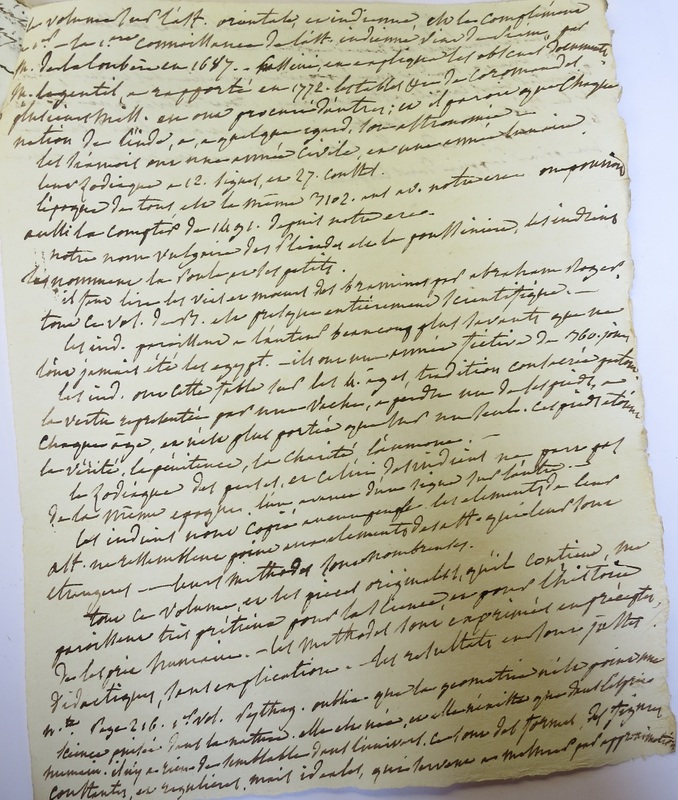 le volume sur l'ast. orientale, et indienne, est le complément
la 1ere connoissance de l'ast. indienne vient de siam, par
m. de la loubère en 1687. - Cassini, en expliqua les obscurs documents
m. legentil a rapporté en 1772. les tables de Coromandel.
plusieurs miss. en ont procuré d'autres; et il paroit que chaque
nation de l'inde, a, a quelque egard, son astronomie -
les siamois ont une année civile, et une année lunaire.
leur zodiaque a 12. signes, et 27. const.
l'époque de tous est la même 3102. ans av. notre ere
aussi la comptés de 1491. depuis notre ere.
notre nom vulgaire des Pleiades est la poussiniere, les indiens
les nomment la Poule et les petits.
il faut lire les vies et moeurs des bramines par abraham Roger
tout ce vol. est presque entièrement scientifique. -
les ind. paroissent a l'auteur beaucoup plus savants que ne
l'ont jamais été les egypt. - ils ont une année fictive de 360. jours
les ind. ont cette fable sur les 4. ages, tradition consacrée partout.
la vertu representée par une vache, a perdu un de ses pieds, a
chaque age, et n'est plus portée que sur un seul. Ces pieds etoient
la vérité, la pénitence, la charité, l'aumone. -
le zodiaque des perses, et celui des indiens ne part pas
de la même epoque. l'un avance d'un signe sur l'autre. -
les indiens n'ont copié aucun peuple. les elements de leur
ast. ne ressemblent point aux elements des ast. qui leur sont
etrangeres - leurs methodes sont nombreuses.
tout ce volume, et les pieces originales, qu'il contient, me
paroissent très prétieux pour la science, et pour l'histoire
de l'esprit humain. - les methodes sont exprimées en préceptes,
didactiques, sans explication - les resultats en sont justes
n.te Page 216. 1er vol. Pythag. oublia que la geometrie n'est point une
science puisée dans la nature. elle est née, et elle n'existe que dans l'esprit
humain. il n'y a rien de semblable dans l'univers. ce sont des formes, des figures
constantes, et regulieres, mais ideales, qui servent de mesures par approximation